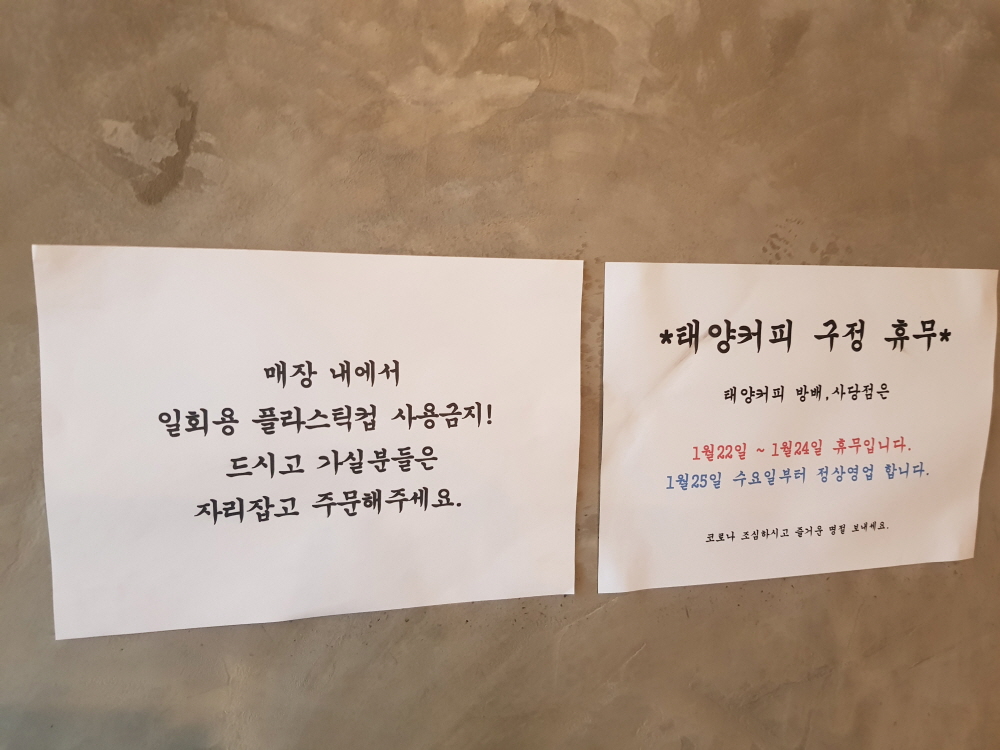 매장 내에서
일회용 플라스틱컵 사용금지!
드시고 가실분들은
자리잡고 주문해주세요.
*태양커피 구정 휴무*
태양커피 방배,사당점은
1월22일 ~ 1월24일 휴무입니다.
1월25일 수요일부터 정상영업 합니다.
코로나 조심하시고 즐거운 명절 보내세요.